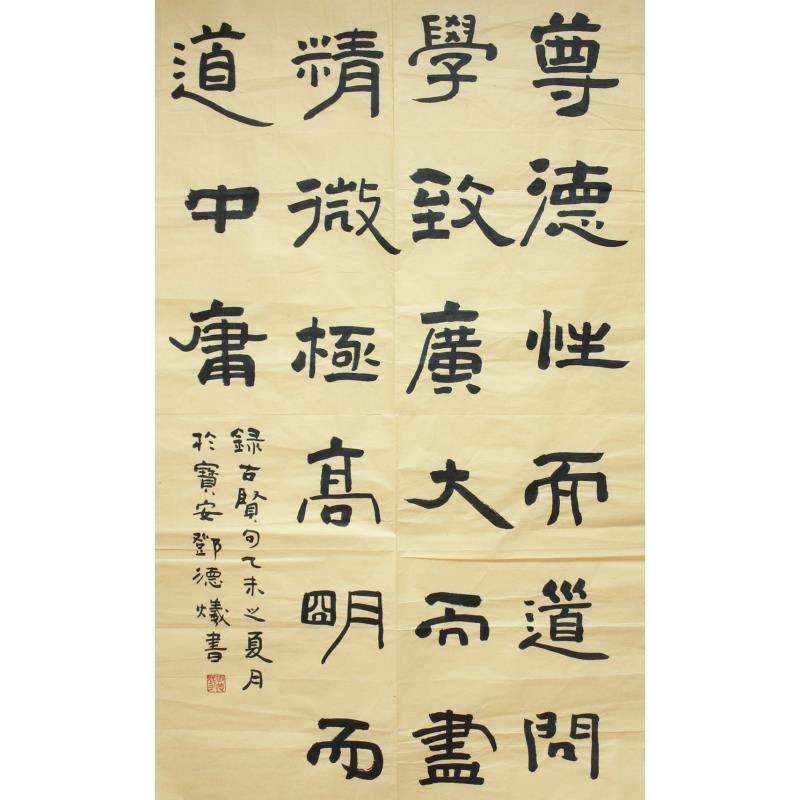 尊德性而道問
學致廣大而盡
精微極高明而
道中庸
録古賢句乙未之夏月
於寶安鄧德爔書